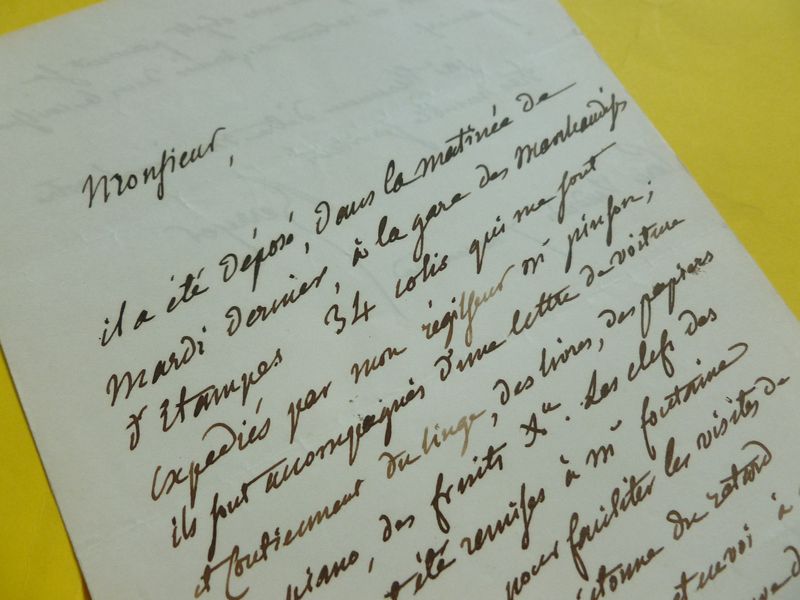 Monsieur,
il a été déposé, dans la matinée de
Mardi dernier, à la gare des Marchandises
d'Etampes 34 colis qui me sont
expediés par mon régisseur mr pinson;
ils sont accompagnés d'une lettre de voiture
et contiennent du linge, des livres, des papiers
piano, des fruits &a. Les clefs des
été remises à mr fontaine
pour faciliter les visites de
étonne du retard
et envoi à